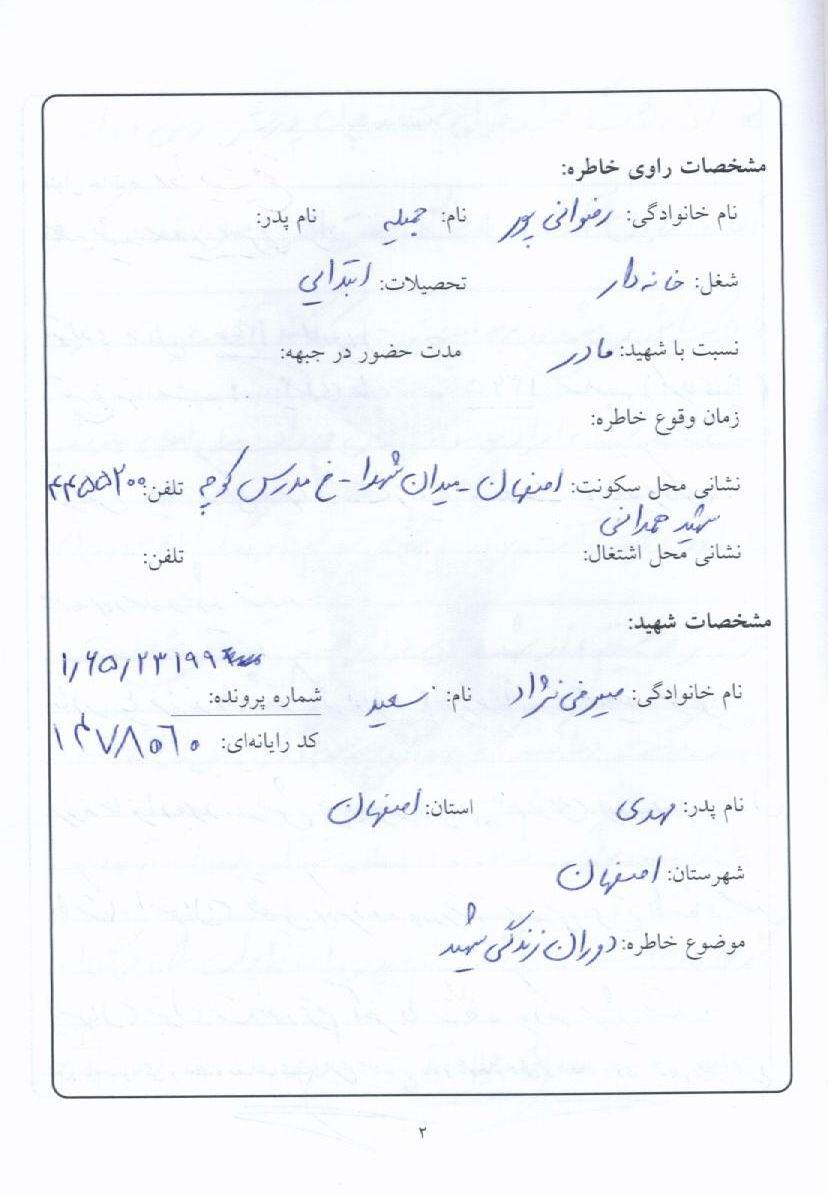 مشخصات راوی خاطره:
نام خانوادگی: رضوانی پور نام: جمیله نام پدر:
شغل: خانه دار تحصیلات: ابتدایی
نسبت با شهید: مادر مدت حضور در جبهه:
زمان وقوع خاطره:
نشانی محل سکونت: اصفهان - میدان شهدا - خ مدرس کوچه تلفن: ۴۴۵۵۲۰۰
شهید همدانی
نشانی محل اشتغال: تلفن:
مشخصات شهید:
۱٫۶۵٫۲۳۱۹۹
نام خانوادگی: صیرفی نژاد نام: سعید شماره پرونده:
کد رایانه‌ای: ۱۴۷۸۵۶۰
نام پدر: مهدی استان: اصفهان
شهرستان: اصفهان
موضوع خاطره: دوران زندگی شهید
۲